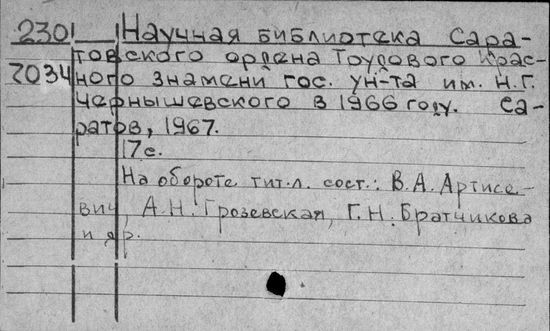 2301 Научная библиотека Сара-
товского ордена Трудового Крас-
2034 ного Знамени гос. ун-та им. Н.Г.
Чернышевского в 1966 году. Са-
ратов, 1967.
17с.
На обороте тит.л. сост.: В.А. Артисе-
вич, А.Н. Грозевская, Г.Н. Братчикова
и др.